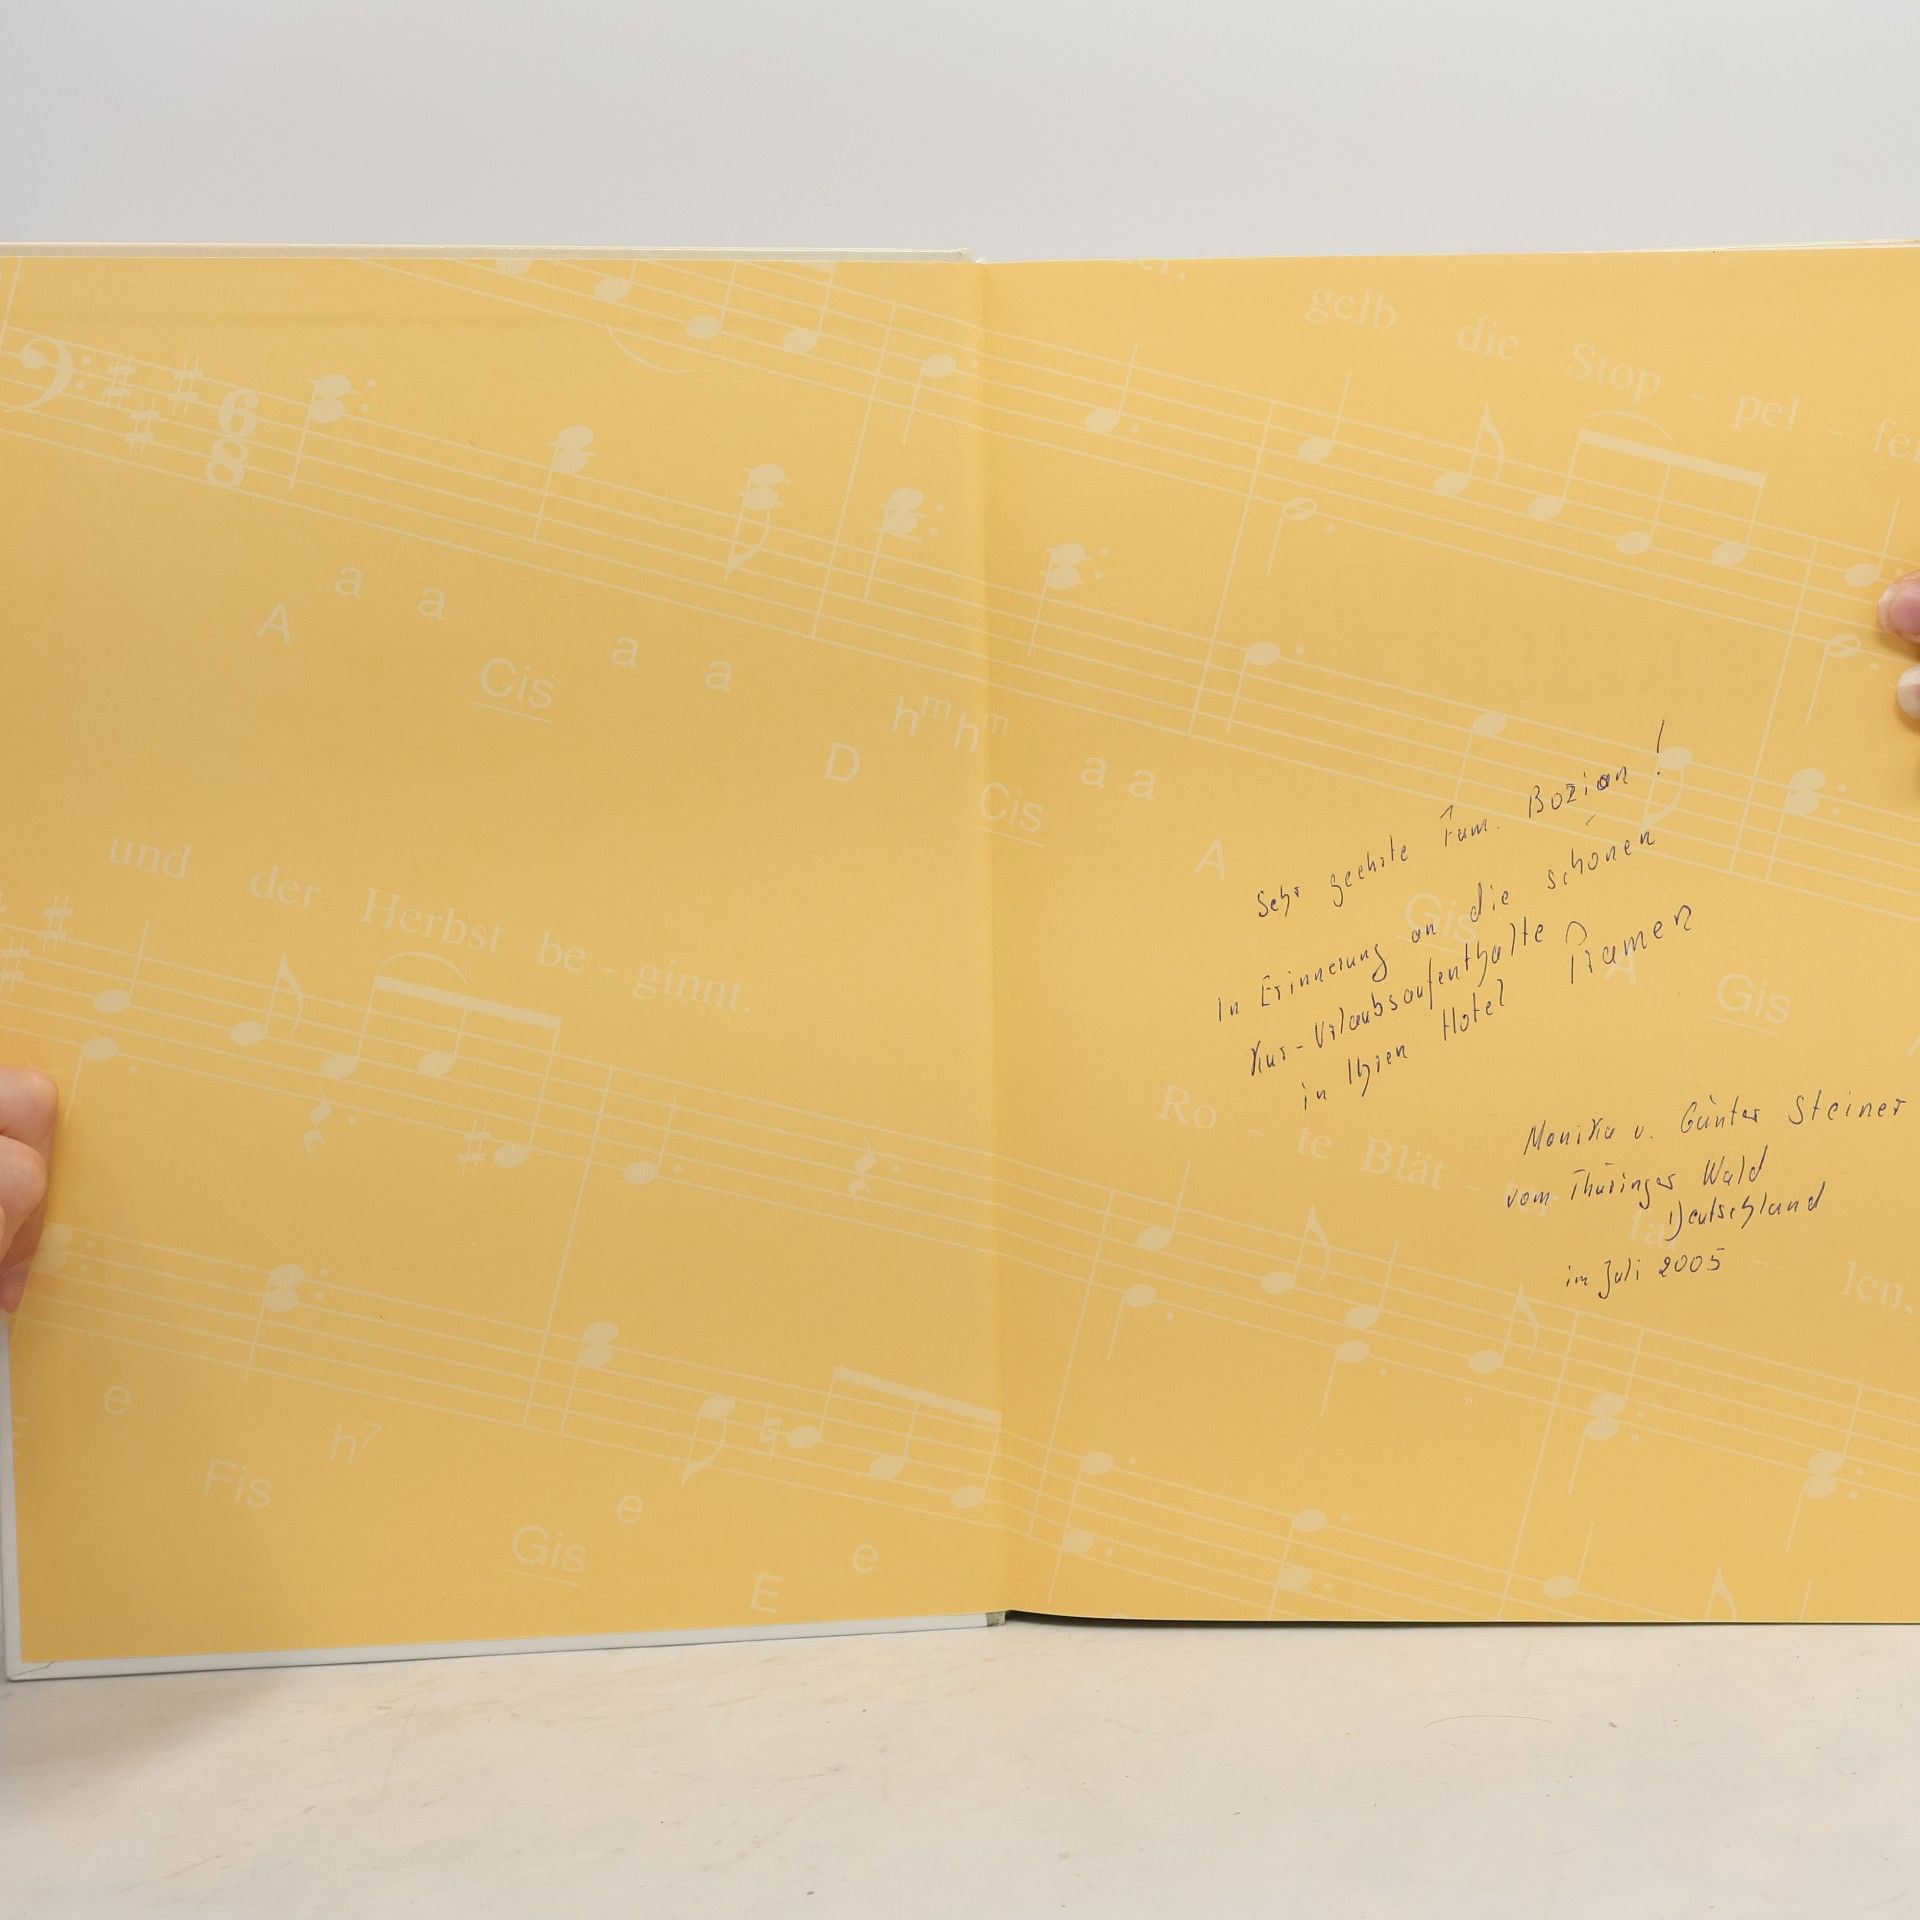 A a a Cis a a D hm hm
Cis a a A Gis A Gis
er, gelb die Stop - pel - fel
und der Herbst be - ginnt.
Ro - te Blät - fal - len,
e Fis h7 Gis e E e
6
8
Sehr geehrte Fam. Bozian !
In Erinnerung an die schönen
Kur-Urlaubsaufenthalte
in Ihren Hotel
Monika u. Günter Steiner
vom Thüringer Wald
Deutschland
im Juli 2005